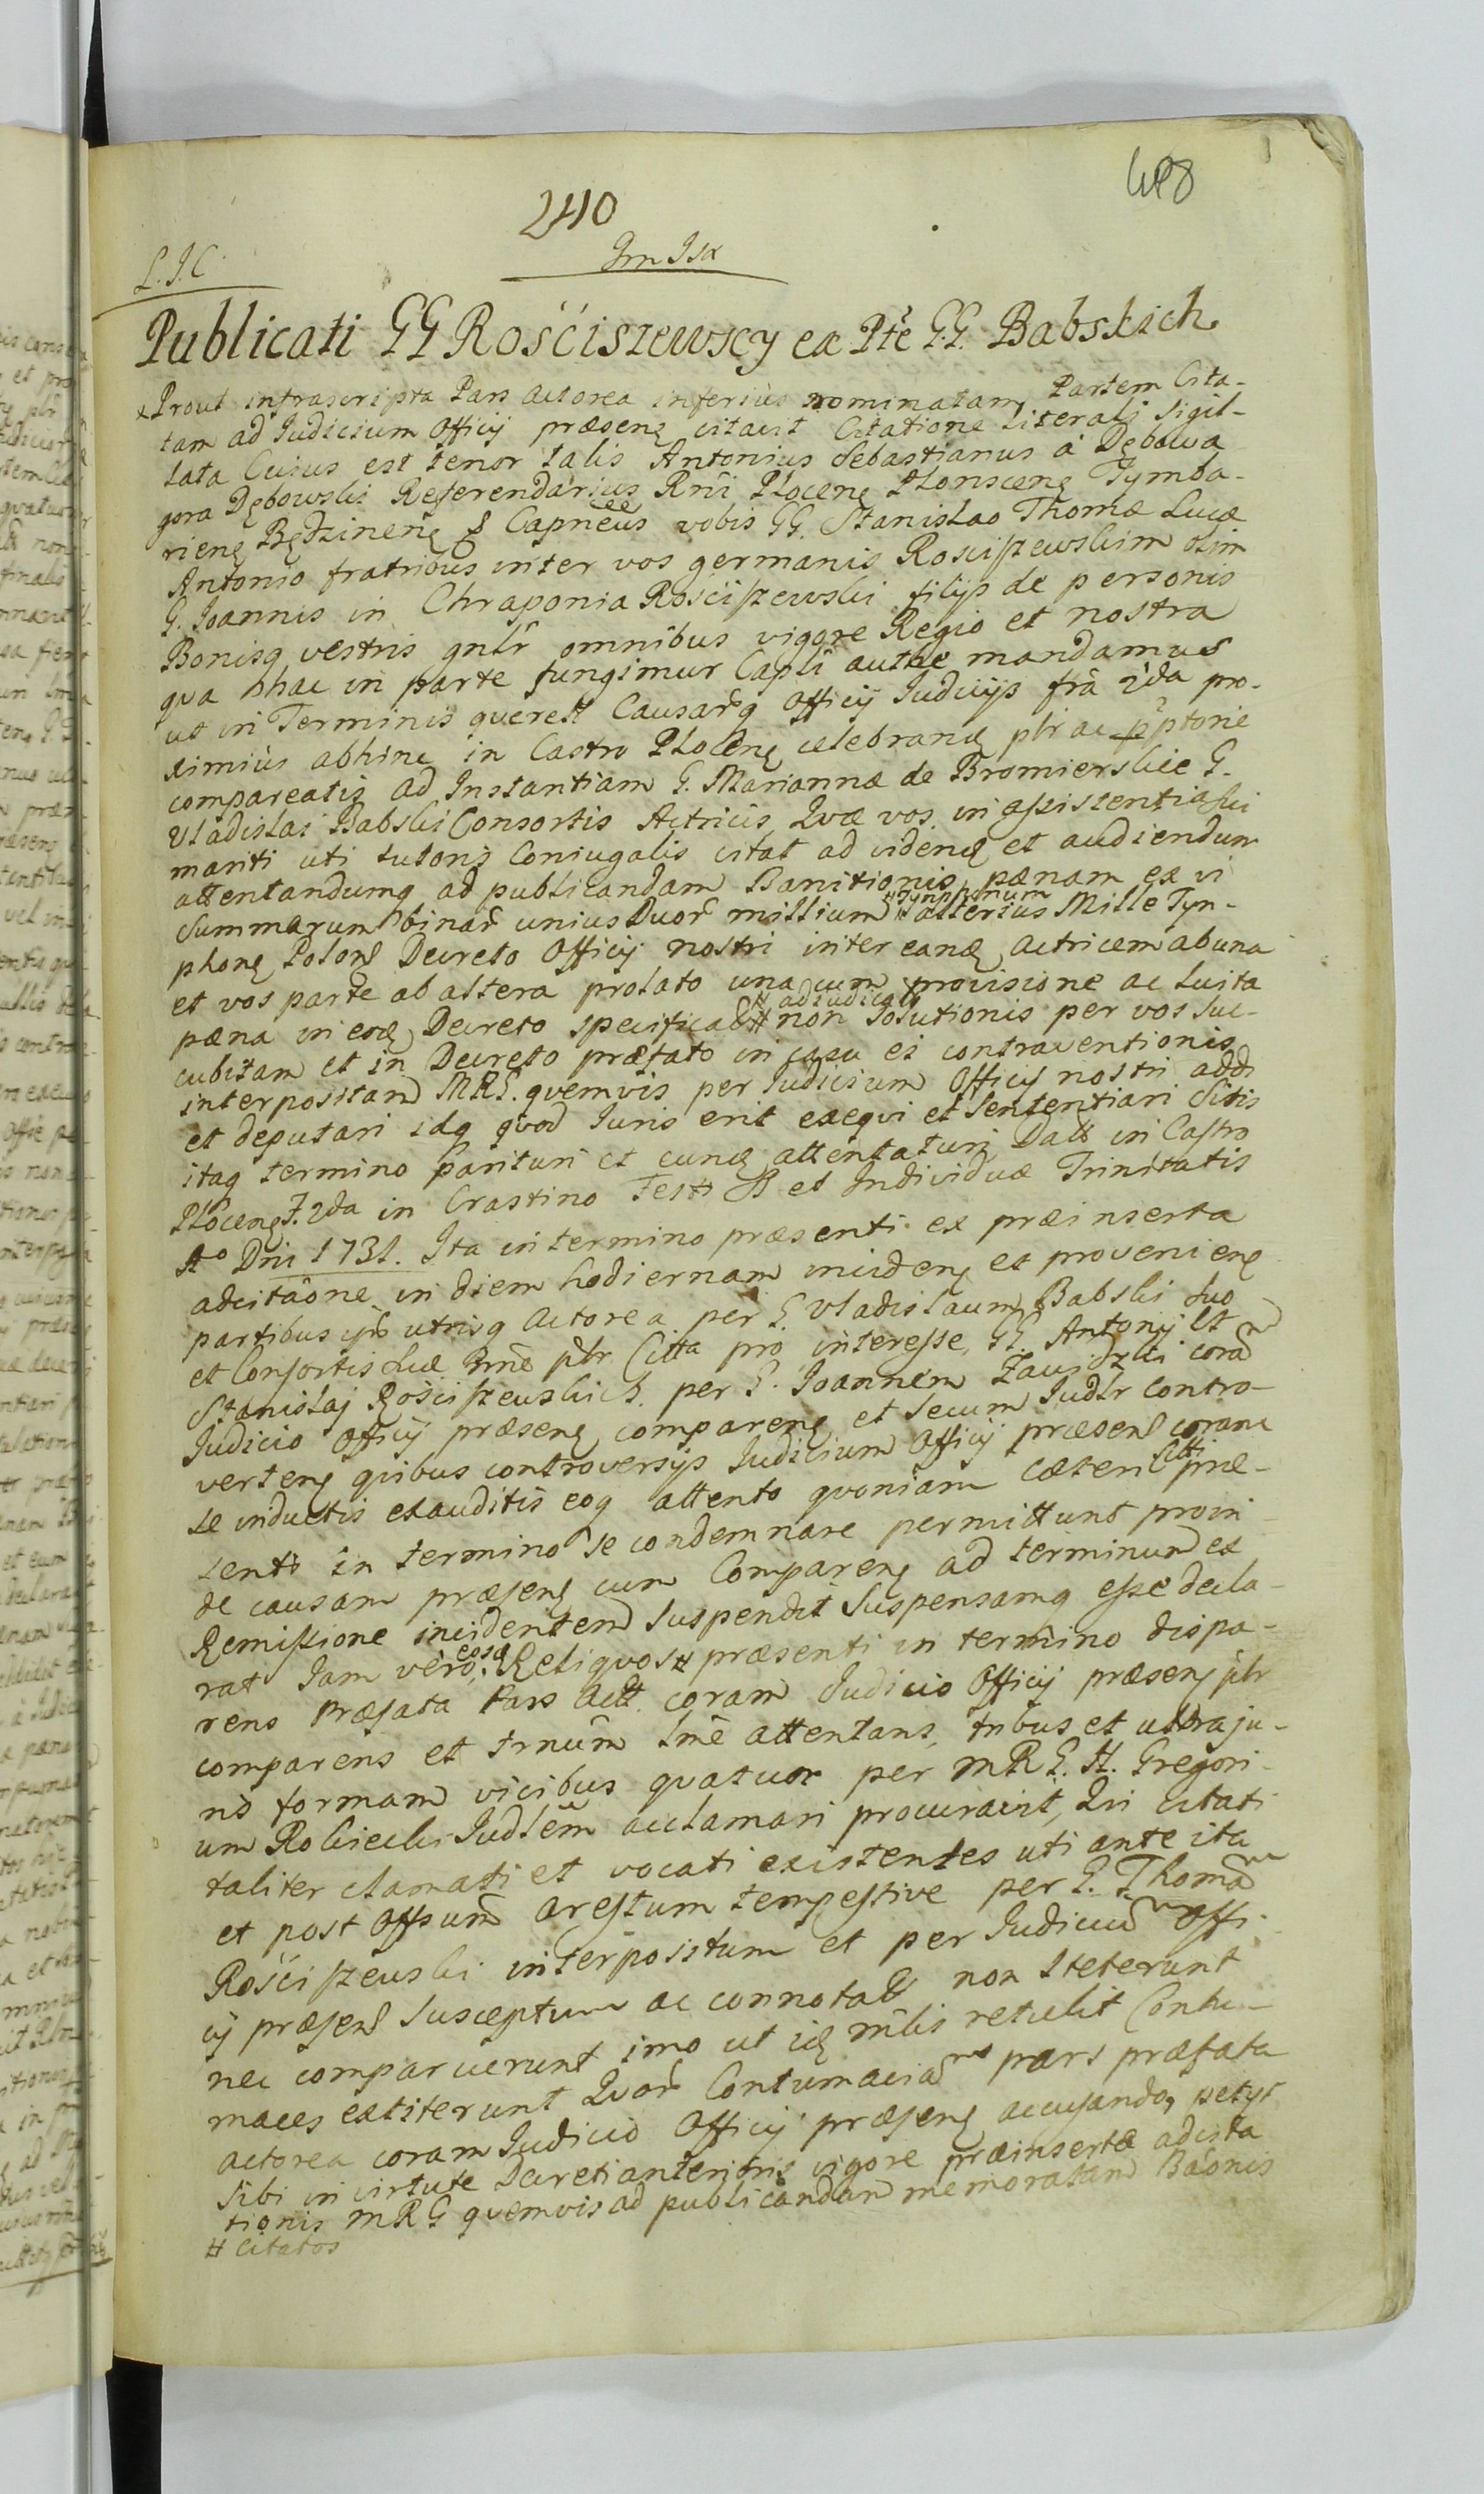 408
240
L.I.C.
Publicati GG Rościszewscy ex Ptē G.G. Babskich
Prout infrascripta Pars Actorea inferius nominatam Partem Cita-
tam ad Iudicium Officij præsenę citavit Citatione Literali Sigil-
lata Cuius est tenor talis Antonius Sebastianus à Dębowa
gora Dębowski Referendarius Rnī Plocenę Plonscenę Tymba-
rienę Będzinenę Capneus vobis GG. Stanislao Thomæ Lucæ
Antonio fratribus inter vos germanis Rosciszewskim olim
G. Joannis in Chraponia Rościszewski filijs de personis
Bonisq vestris gnlr omnibus vigore Regio et nostra
qua hhac in parte fungimur Capli authe mandamus
ut in Terminis querell Causarq Officij Iudicijs frā 2da pro-
ximius abhinc in Castro Plocenę celebranđ plr ac pptorie
compareatis ad Instantiam G. Mariannæ de Bromierskie G.
Vladislai Babski Consortis Actricis Quæ vos in assistentia sui
mariti uti tutoris Coniugalis citat ad videnđ et audiendum
attentandumq ad publicandam Banitionis pænam ex vi
Summarum binar unius Duor millium # Tymphonum alterius Mille Tyn-
phonę Polon Decreto Officij nostri inter eanđ actricem ab una
et vos parte ab altera prolato una cum provisione ac luita
pæna in eođ Decreto specificał # adiudicał non solutionis per vos suc-
cubitam et in Decreto præfato in casu ei contraventionis
interpositam MRG. quemvis per Iudicium Officij nostri addi
et deputari idq quod Iuris erit exequi et Sententiari Sitis
itaq termino parituri et eunđ attentaturi Datt in Castro
Plocenę F. 2da in Crastino Festi SS et Individuæ Trinitatis
Ao Dni 1731. Ita in termino præsenti ex præinserta
adcitāone in diem hodiernam incidenę et provenienę
partibus ipis utrisq Actorea per G. Vladislaum Babski suo
et Consortis suæ nnē plr Citta pro interesse GG. Antonij Et
Stanislaj Rościszewskich per G. Joannem Zawidzki corā
Iudicio Officij præsenę comparenę et Secum Iudlr contro-
vertenę quibus controversijs Iudicium Officij præsenę coram
se inductis exauditis eoq attento quoniam Cæteri Citti præ-
senti in termino se condemnare permittunt proin
de causam præsenę cum Comparenę ad terminum ex
Remissione incidentem suspendit Suspensamq esse decla-
rat Iam vero eosq Reliquos # præsenti in termino dispa-
rens Præfata Pars Actt. coram Iudicio Officij præsenę plr
comparens et trnūm lmē attentans, tribus et ultra ju-
ris formam vicibus quatuor per MRG. H. Gregori-
um Rokicki Iudlēm acclamari procuravit, Qui citati
taliter clamati et vocati existentes uti ante ita
et post Offsum Arestum tempestive per G. Thomā
Rościszewski interpositum et per Iudiciū Offi-
cij præsenę susceptum ac connotatt non steterunt
nec comparuerunt imo ut iđ mlis retulit Contu-
maces extiterunt Quor Contumaciā pars præfata
actorea coram Iudicio Officij præsenę accusando, petyt
sibi in virtute Decreti anterioris vigore præinsertæ adcita
tionis MRG quemvis ad publicandam memoratam Bāonis
# Citatos